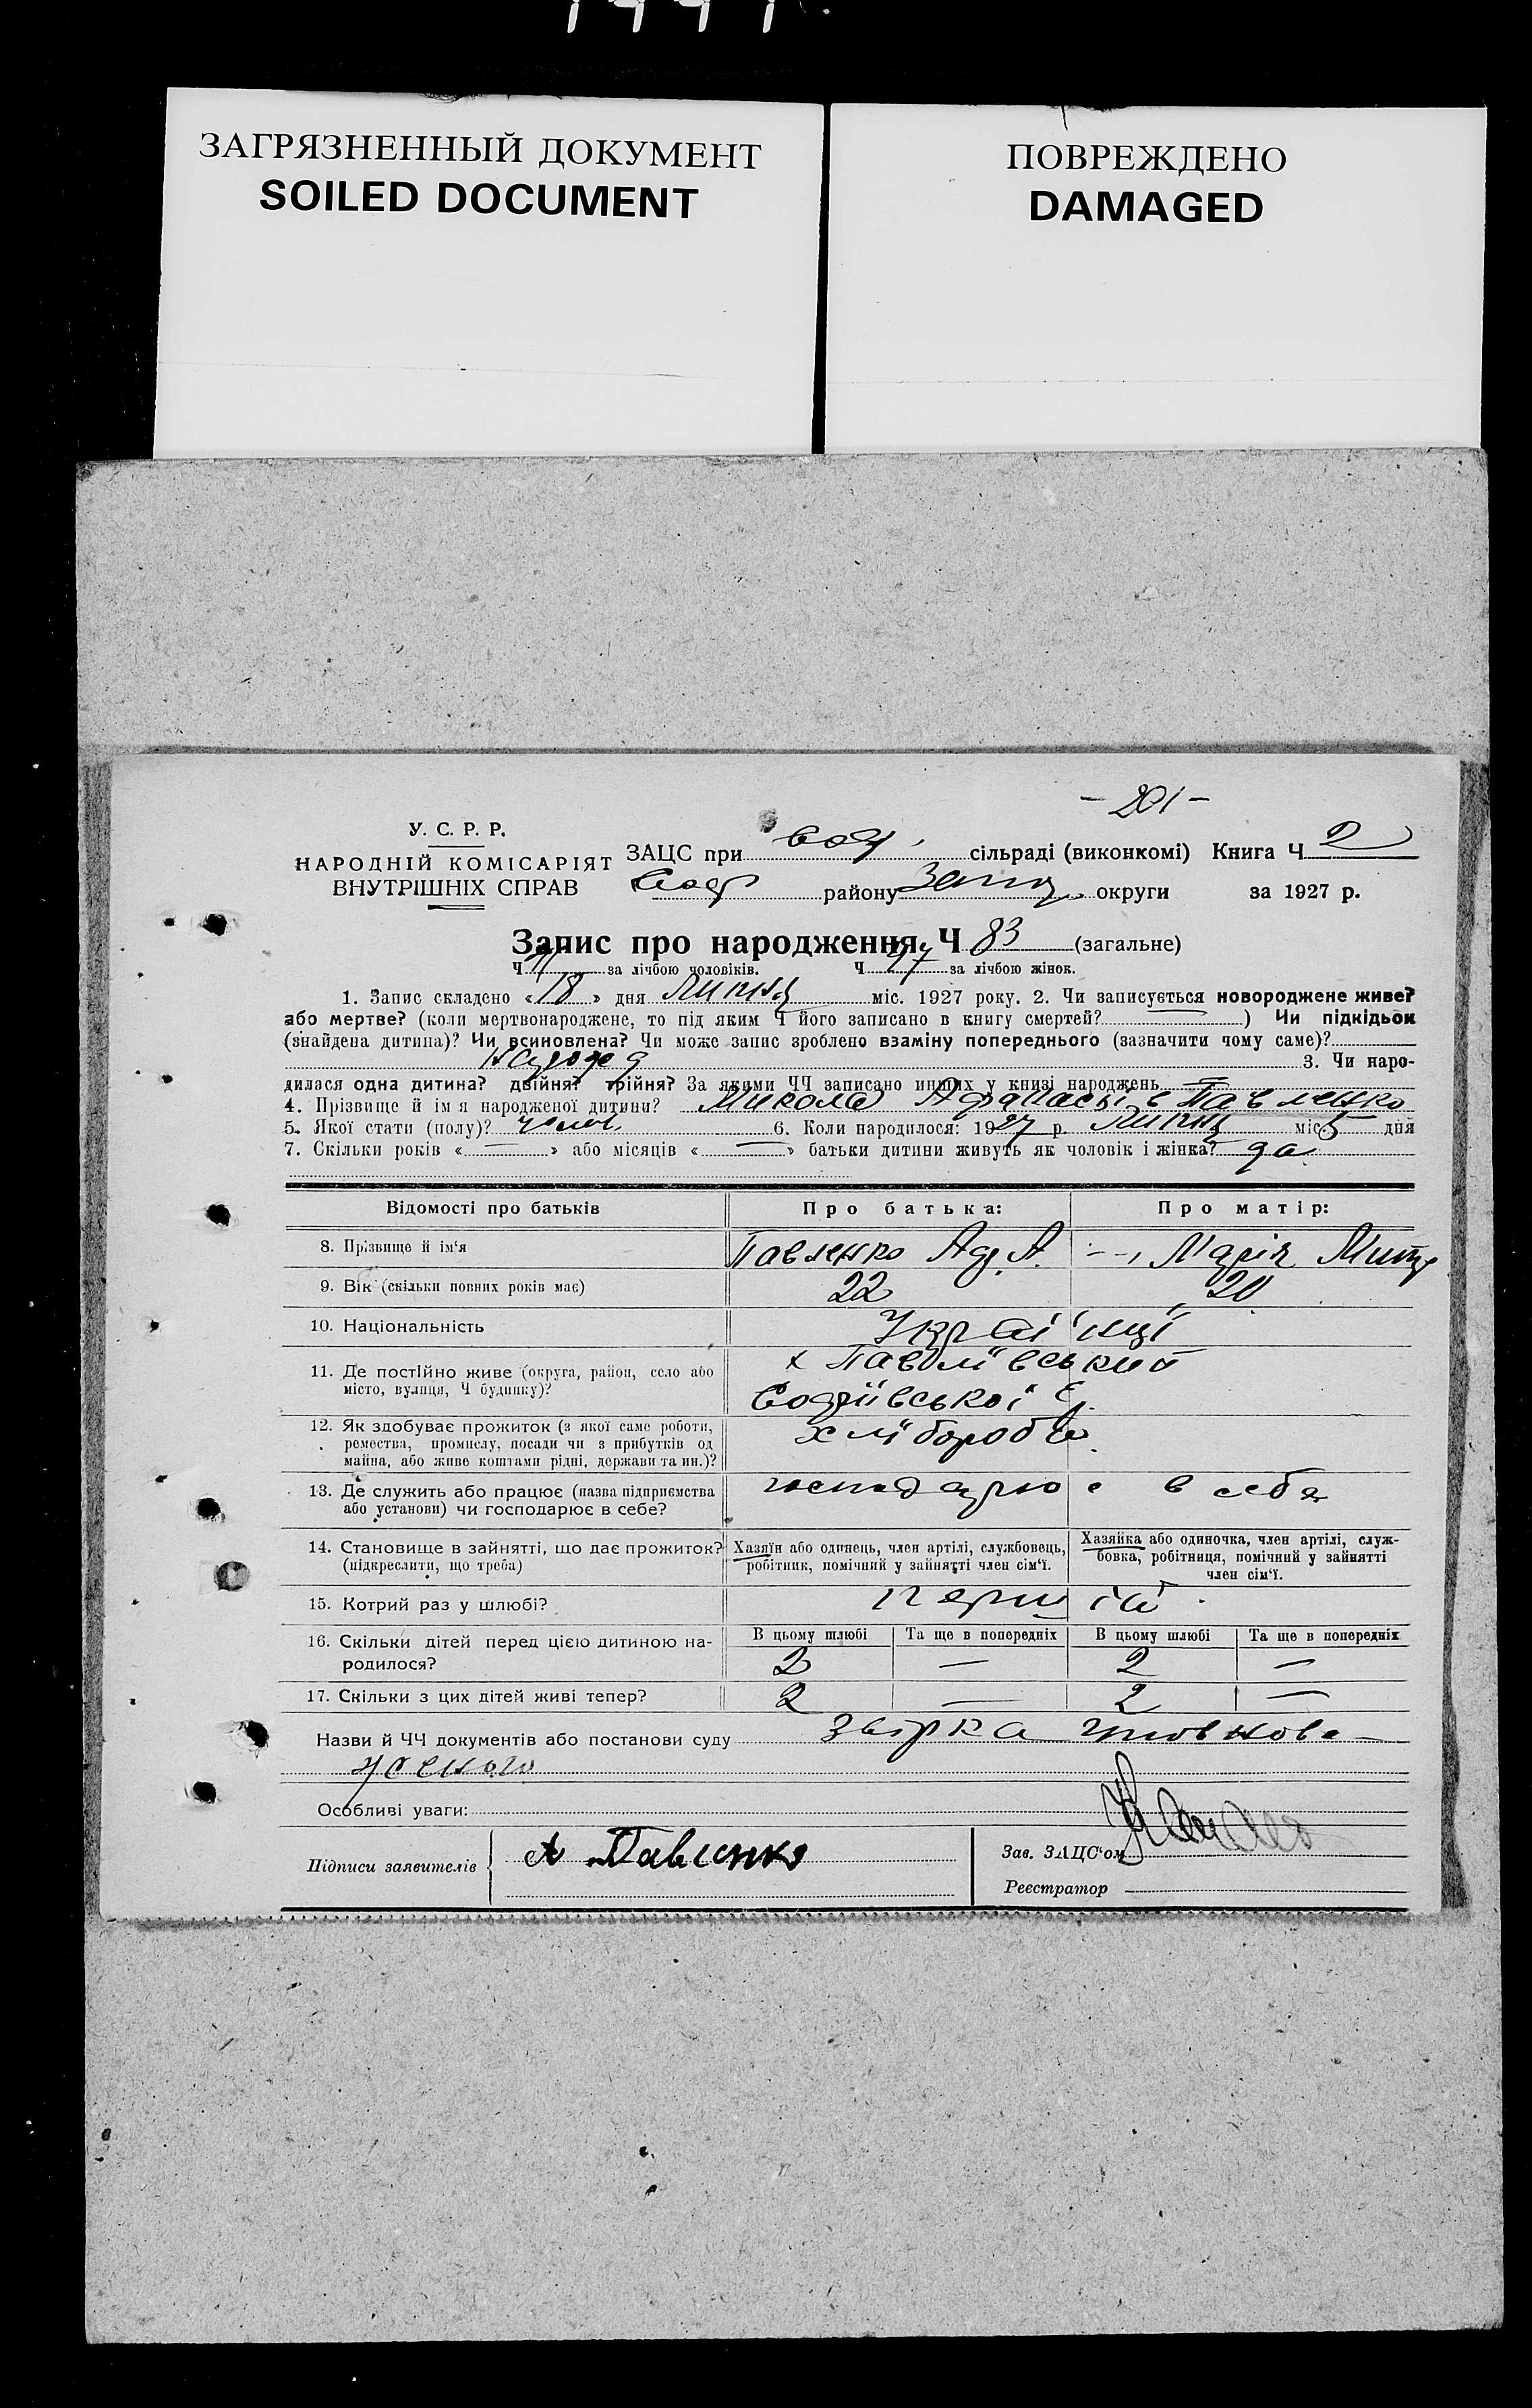 ЗАГРЯЗНЕННЫЙ ДОКУМЕНТ
SOILED DOCUMENT
ПОВРЕЖДЕНО
DAMAGED
- 201 -
У. С. Р. Р.
НАРОДНІЙ КОМІСАРІЯТ
ВНУТРІШНІХ СПРАВ
ЗАЦС при Соф. сільраді (виконкомі) Книга Ч 2
Соф району Запор округи за 1927 р.
Запис про народження Ч 83 (загальне)
Ч за лічбою чоловіків. Ч за лічбою жінок.
1. Запис складено «18» дня Липня міс. 1927 року. 2. Чи записується новороджене живе?
або мертве? (коли мертвонароджене, то під яким Ч його записано в книгу смертей? —) Чи підкідьок
(знайдена дитина)? Чи всиновлена? Чи може запис зроблено взаміну попереднього (зазначити чому саме)?
3. Чи наро-
дилася одна дитина? двійня? трійня? За якими ЧЧ записано инших у книзі народжень =
4. Прізвище й ім'я народженої дитини? Микола Афанасьїв Павленко
5. Якої стати (полу)? чолов. 6. Коли народилося: 1927 р. Липня міс 5 дня
7. Скільки років «—» або місяців «—» батьки дитини живуть як чоловік і жінка? да
Відомості про батьків
Про батька:
Про матір:
8. Прізвище й ім'я
Павленко Аф. А.
-"- Марія Митр
9. Вік (скільки повних років має)
22
20
10. Національність
Українці
11. Де постійно живе (округа, район, село або
місто, вулиця, Ч будинку)?
х Павлівський
Софіївської с.
12. Як здобуває прожиток (з якої саме роботи,
ремества, промислу, посади чи з прибутків од
майна, або живе коштами рідні, держави та ин.)?
хліборобів
13. Де служить або працює (назва підприємства
або установи) чи господарює в себе?
господарює в себя
14. Становище в зайнятті, що дає прожиток?
(підкреслити, що треба)
Хазяїн або одинець, член артілі, службовець,
робітник, помічний у зайнятті член сім'ї.
Хазяйка або одиночка, член артілі, служ-
бовка, робітниця, помічний у зайнятті
член сім'ї.
15. Котрий раз у шлюбі?
перший
16. Скільки дітей перед цією дитиною на-
родилося?
В цьому шлюбі Та ще в попередніх В цьому шлюбі Та ще в попередніх
2 — 2 —
17. Скільки з цих дітей живі тепер?
2 — 2 —
Назви й ЧЧ документів або постанови суду звірка
Особливі уваги:
Підписи заявителів
А Павленко
Зав. ЗАЦС'ом
Реєстратор